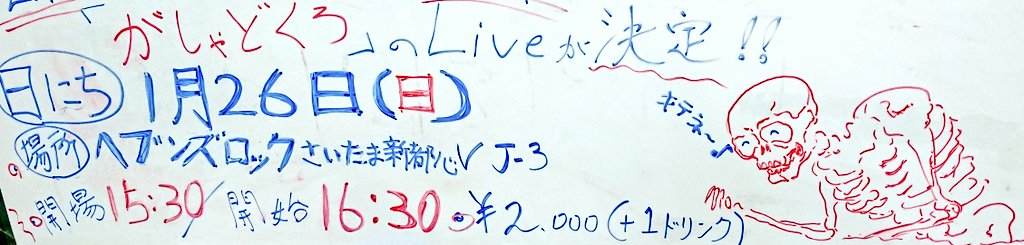 がしゃどくろ」のLiveが決定!!
日にち 1月26日(日)
キテネ〜♪
場所 ヘブンズロックさいたま新都心VJ-3
開場15:30/開始16:30 ¥2.000(+1ドリンク)